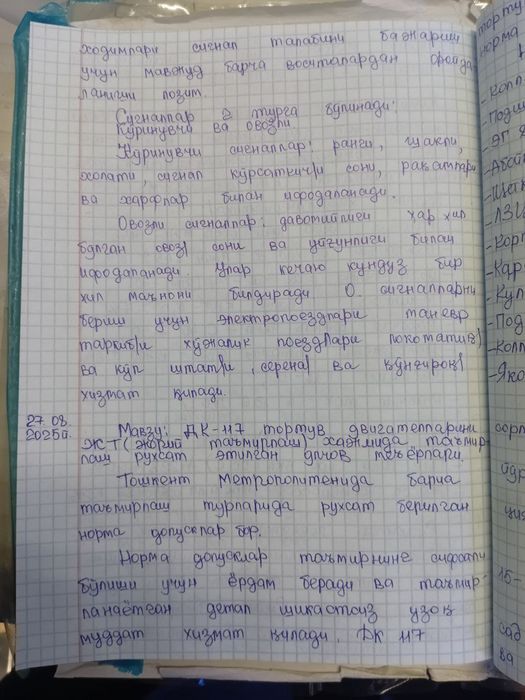 ходимлари сигнал талабини бажариш
учун мавжуд барча воситалардан фойда
ланиши лозим.
Сигналлар 2 турга бўлинади:
кўринувчи ва овозли.
Кўринувчи сигналлар: ранги, шакли,
холати, сигнал кўрсаткичи сони, рақамлари
ва харфлар билан ифодаланади.
Овозли сигналлар: давомийлиги хар хил
бўлган овоз сони ва уйғунлиги билан
ифодаланади. Улар кечаю кундуз бир
хил маънони билдиради О. сигналларни
бериш учун электропоездлари маневр
таркиби хўжалик поездлари локомативи
ва кўл штати, серена ва қўнғироқ
хизмат қилади.
27.08.
2025й.
Мавзу: ДК-117 тортув двигателларини
ЖТ (жорий таъмирлаш) хажмида таъмир-
лаш рухсат этилган ўлчов меъёрлари.
Тошкент Метрополитенида барча
таъмирлаш турларида рухсат берилган
норма допусклар бор.
Норма допусклар таъмирнинг сифатли
бўлиши учун ёрдам беради ва таъмир-
ланаётган детал шикастсиз узоқ
муддат хизмат қилади. ДК 117
торту
норма
- Колл
- Подш
- Кор
- Кар
- Кул
- Под
- Колл
- Яко
15-
ва